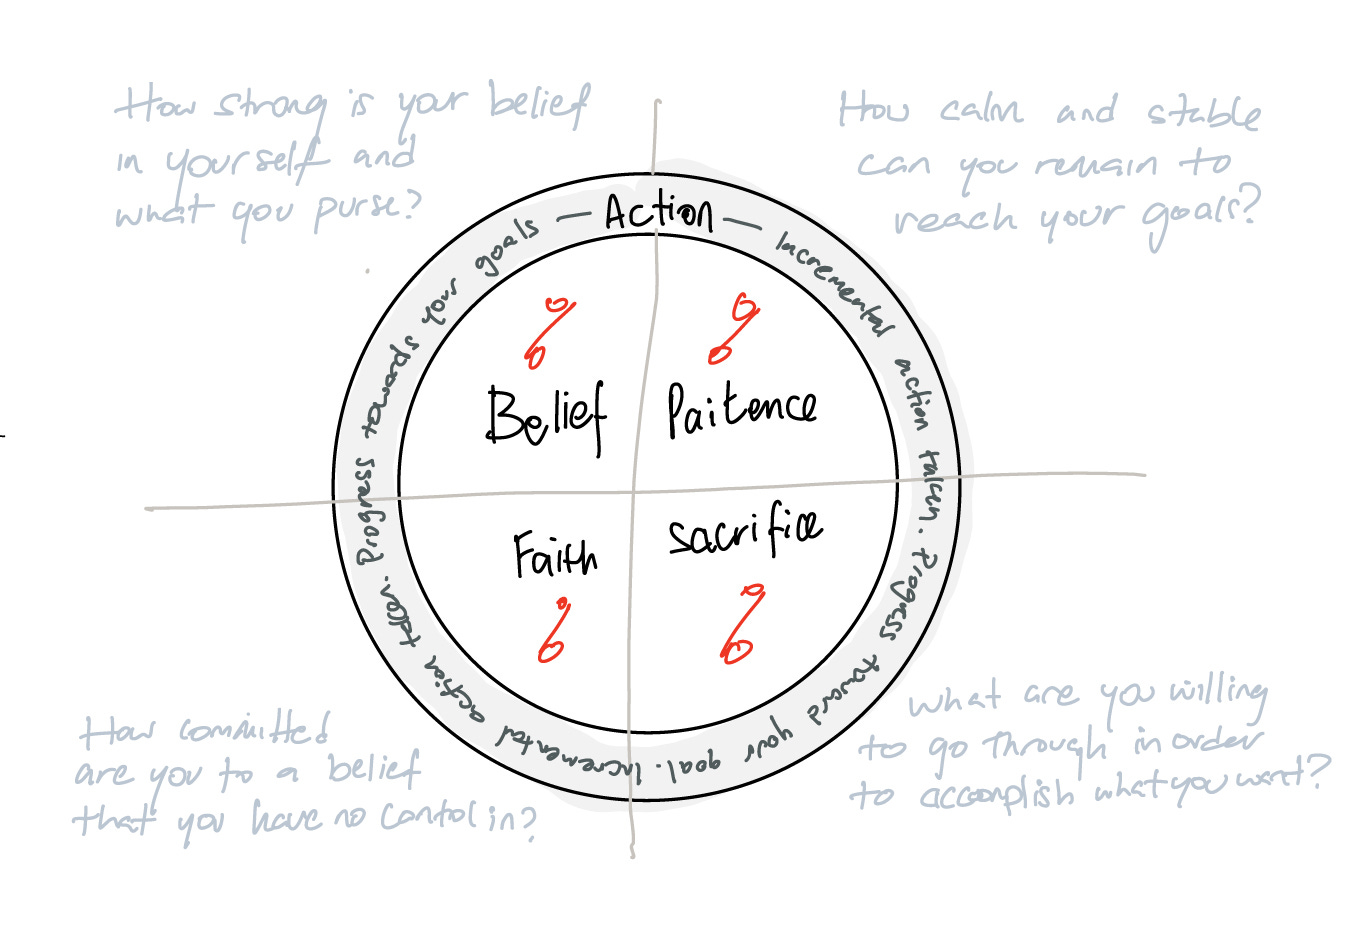 How strong is your belief
in yourself and
what you purse?
How calm and stable
can you remain to
reach your goals?
Action
Incremental action taken. Progress toward your goal. Incremental action taken. Progress towards your goals
Belief
Paitence
Faith
sacrifice
How committed
are you to a belief
that you have no contol in?
what are you willing
to go through in order
to accomplish what you want?